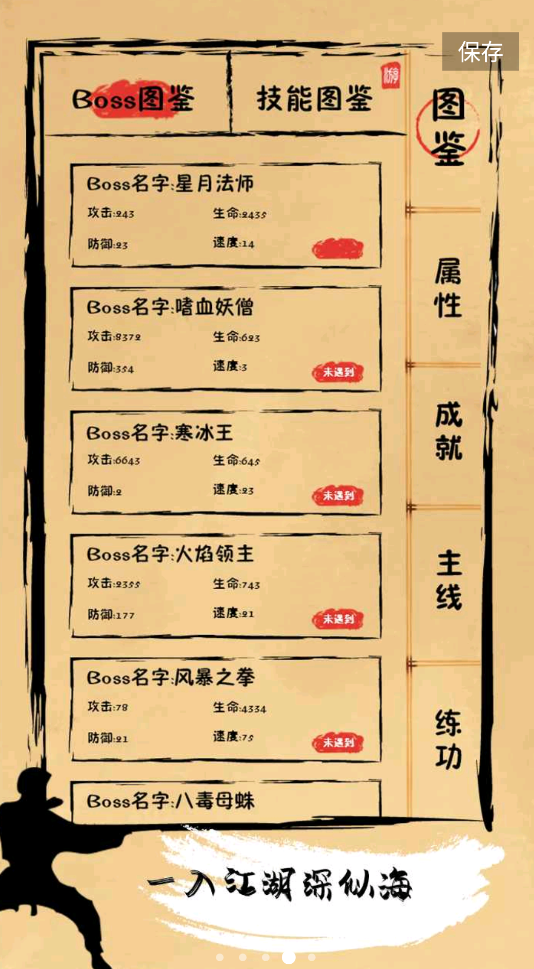 保存
Boss图鉴
技能图鉴
游
图鉴
属性
成就
主线
练功
Boss名字:星月法师
攻击:243
生命:2435
防御:23
速度:14
Boss名字:嗜血妖僧
攻击:8372
生命:623
防御:354
速度:3
未遇到
Boss名字:寒冰王
攻击:6643
生命:645
防御:2
速度:23
未遇到
Boss名字:火焰领主
攻击:2355
生命:743
防御:177
速度:21
未遇到
Boss名字:风暴之拳
攻击:78
生命:4334
防御:21
速度:75
未遇到
Boss名字:八毒母蛛
一入江湖深似海